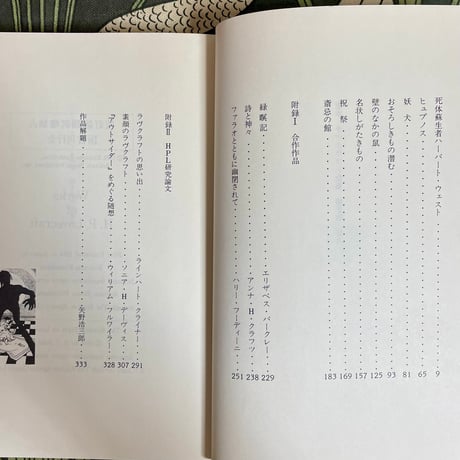 死体蘇生者ハーバート・ウェスト 9
ヒュプノス 65
妖犬 81
おそろしきもの潜む 93
壁のなかの鼠 125
名状しがたきもの 157
祝祭 169
斎忌の館 183
附録Ⅰ 合作作品
緑瞑記 エリザベス・バークレー 229
詩と神々 アンナ・H・クラフツ 238
ファラオとともに幽閉されて ハリー・フーディーニ 251
附録Ⅱ HPL研究論文
ラヴクラフトの思い出 ラインハート・クライナー 291
素顔のラヴクラフト ソニア・H・デーヴィス 307
『アウトサイダー』をめぐる随想 ウィリアム・フルワイラー 328
作品解題 矢野浩三郎 333